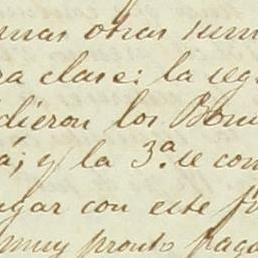 mas otras sum
ra clase: la seg
dieron los Bon
á; y la 3.ª se com
ugar con este f
muy pronto paga